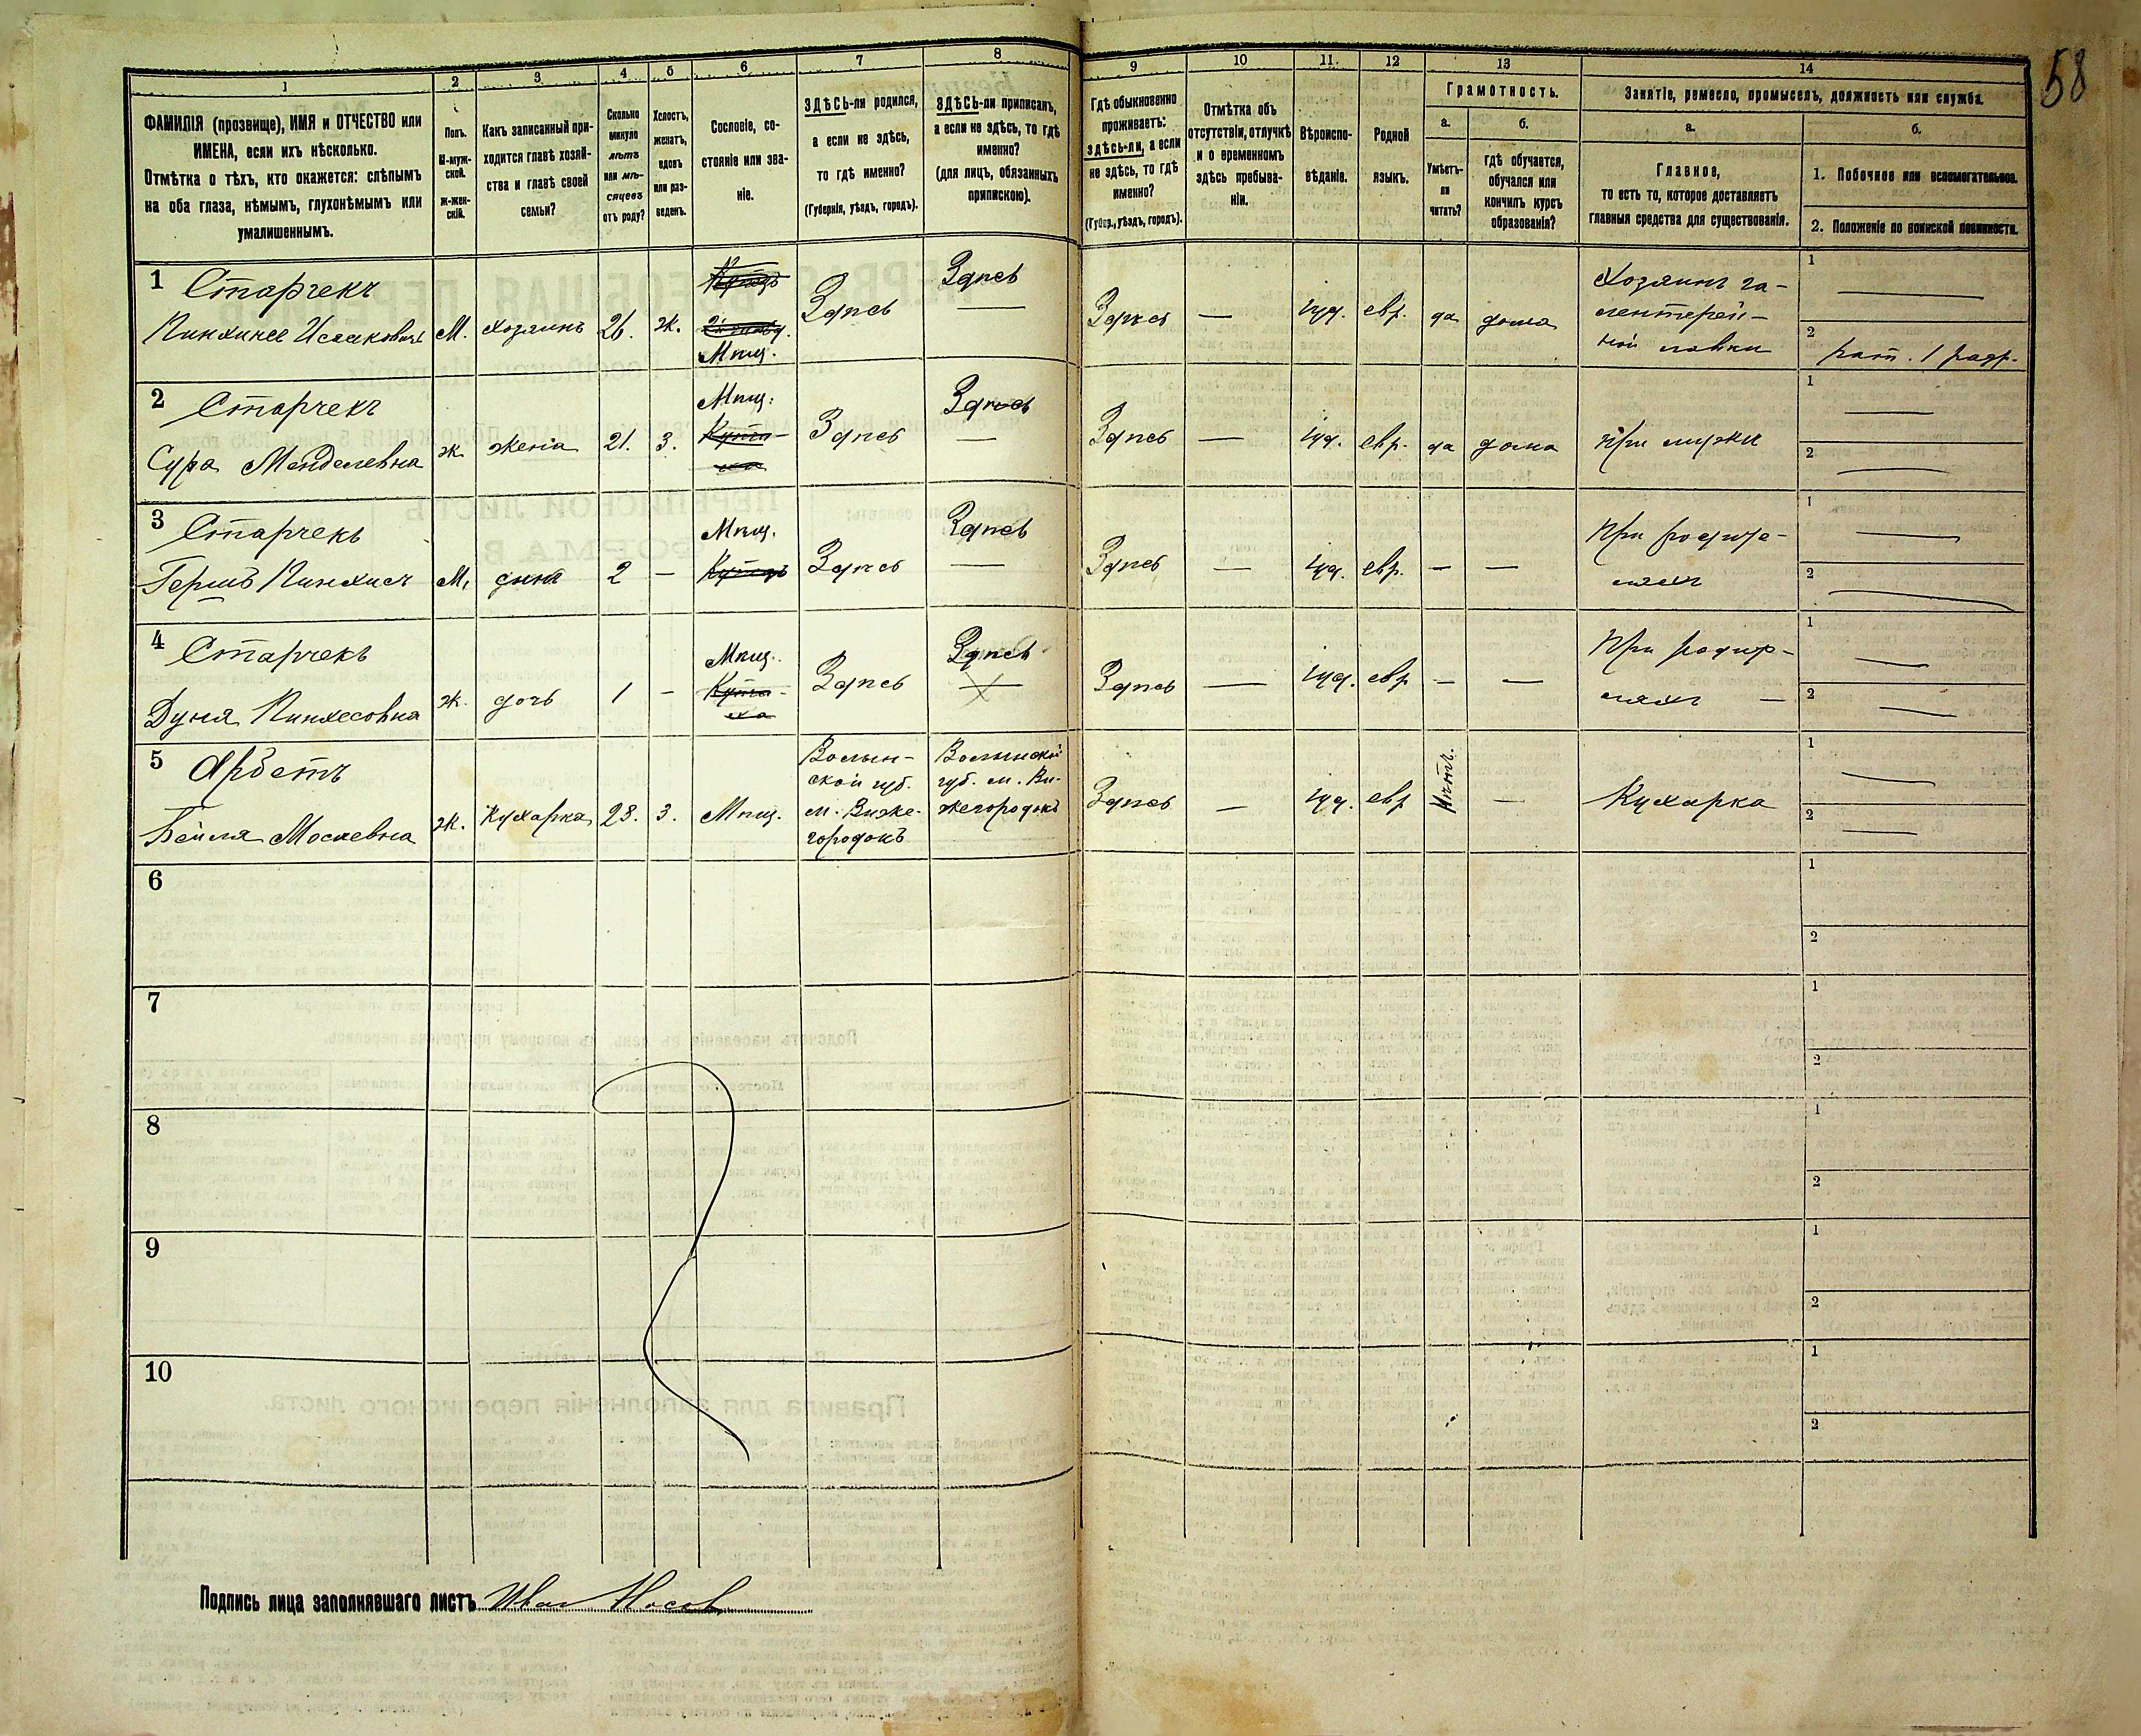 58
1
2
3
4
5
6
7
8
9
10
11.
12
13
14
ФАМИЛІЯ (прозвище), ИМЯ и ОТЧЕСТВО или
ИМЕНА, если ихъ нѣсколько.
Отмѣтка о тѣхъ, кто окажется: слѣпымъ
на оба глаза, нѣмымъ, глухонѣмымъ или
умалишеннымъ.
Полъ.
М-муж-
ской.
ж-жен-
скій.
Какъ записанный при-
ходится главѣ хозяй-
ства и главѣ своей
семьи?
Сколько
минуло
лѣтъ
или мѣ-
сяцевъ
отъ роду?
Холостъ,
женатъ,
вдовъ
или раз-
веденъ.
Сословіе, со-
стояніе или зва-
ніе.
ЗДѢСЬ-ли родился,
а если не здѣсь,
то гдѣ именно?
(Губернія, уѣздъ, городъ).
ЗДѢСЬ-ли приписанъ,
а если не здѣсь, то гдѣ
именно?
(для лицъ, обязанныхъ
припискою).
Гдѣ обыкновенно
проживаетъ:
здѣсь-ли, а если
не здѣсь, то гдѣ
именно?
(Губер., уѣздъ, городъ).
Отмѣтка объ
отсутствіи, отлучкѣ
и о временномъ
здѣсь пребыва-
ніи.
Вѣроиспо-
вѣданіе.
Родной
языкъ.
Грамотность.
а.
б.
Умѣетъ-
ли
читать?
гдѣ обучается,
обучался или
кончилъ курсъ
образованія?
Занятіе, ремесло, промыселъ, должность или служба.
а.
б.
Главное,
то есть то, которое доставляетъ
главныя средства для существованія.
1. Побочное или вспомогательное.
2. Положеніе по воинской повинности.
1 Старчекъ
Пинхинсе Исааковичъ
М.
хозяинъ
26.
ж.
Купецъ
Мѣщ.
Здѣсь
Здѣсь
—
Здѣсь
—
іуд.
евр.
да
дома
Хозяинъ га-
лентерей-
ной лавки
1
—
2
рат. 1 разр.
2 Старчекъ
Сура Менделевна
ж
жена
21.
З.
Мѣщ.
Купчи-
ха
Здѣсь
Здѣсь
—
Здѣсь
—
іуд.
евр.
да
дома
При мужи
1
—
2
—
3 Старчекъ
Гершъ Пинхис
М.
сынъ
2
—
Мѣщ.
Купецъ
Здѣсь
Здѣсь
—
Здѣсь
—
іуд.
евр.
—
—
При родите-
ляхъ
1
—
2
—
4 Старчекъ
Дуня Пинхесовна
ж.
дочь
1
—
Мѣщ.
Купчи-
ха
Здѣсь
Здѣсь
—
Здѣсь
—
іуд.
евр
—
—
При родите-
ляхъ —
1
—
2
—
5 Арбетъ
Бейля Мосневна
ж.
Кухарка
23.
З.
Мѣщ.
Волын-
ской губ.
м. Визже-
городокъ
Волынской
губ. м. Ви-
жегородокъ
Здѣсь
—
іуд.
евр
Нѣтъ.
—
Кухарка
1
—
2
—
6
1
2
7
1
2
8
1
2
9
1
2
10
1
2
Подпись лица заполнявшаго листъ Иван Носов